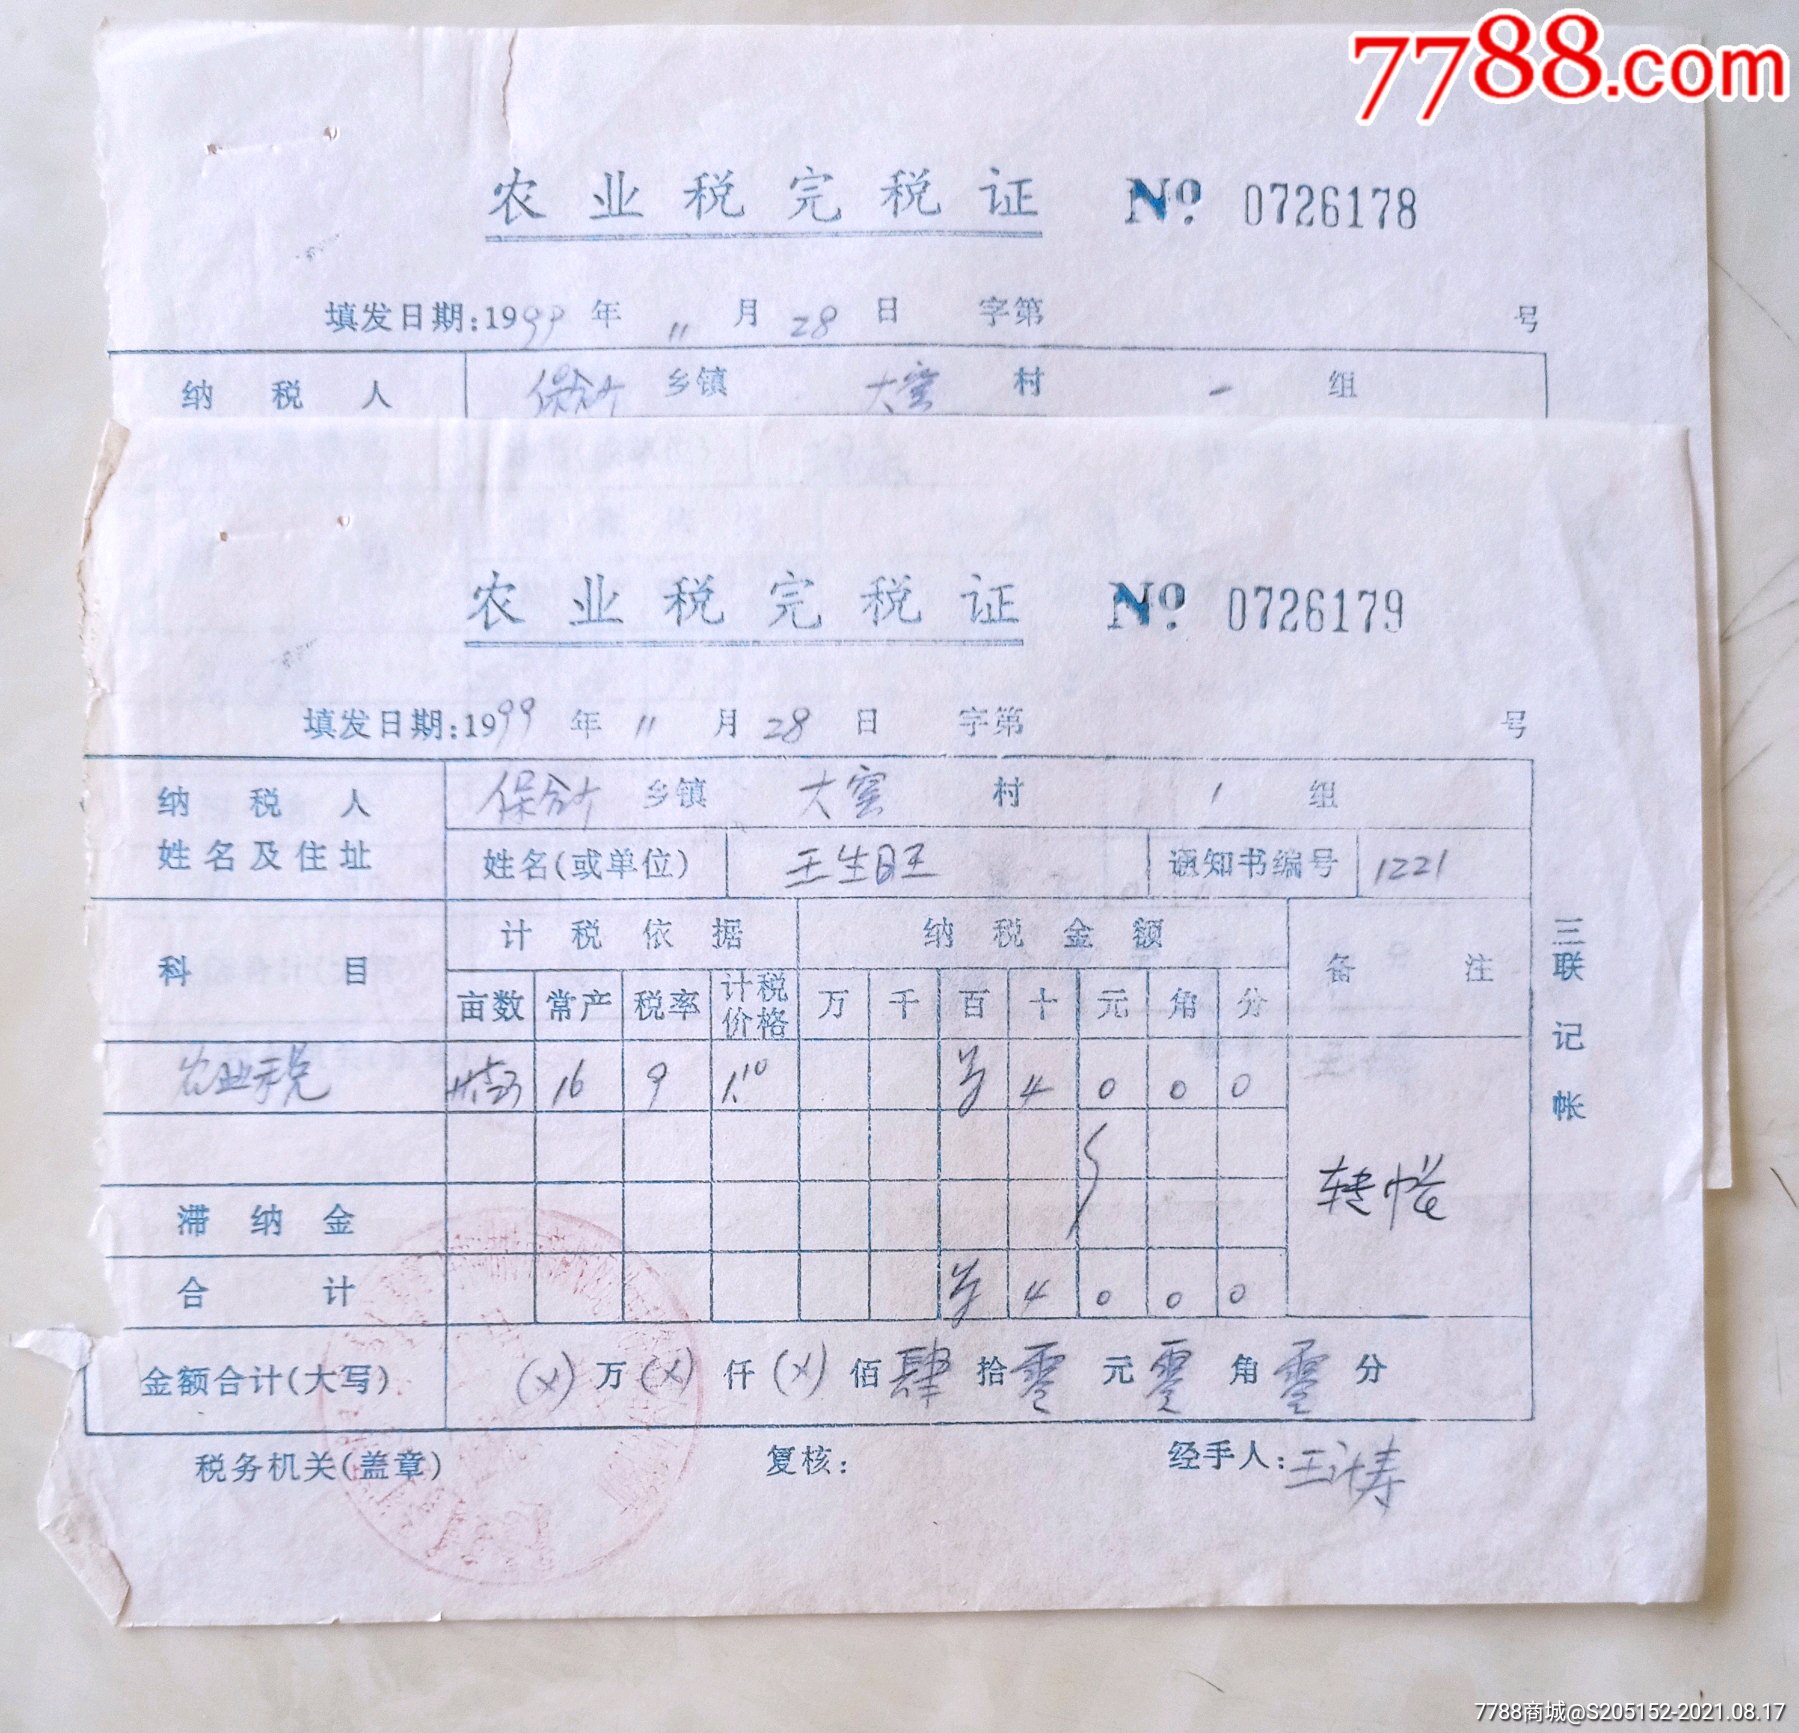 7788.com
农业税完税证 No 0726178
填发日期:1999年11月28日 字第 号
纳税人 保合 乡镇 大窑 村 一 组
农业税完税证 No 0726179
填发日期:1999年11月28日 字第 号
纳税人 保合 乡镇 大窑 村 1 组
姓名及住址 姓名(或单位) 王生旺 通知书编号 1221
科目 计税依据 纳税金额 备注
亩数 常产 税率 计税价格 万 千 百 十 元 角 分
农业税 16 9 1.10 ¥ 4 0 0 0
转帐
滞纳金
合计 ¥ 4 0 0 0
金额合计(大写) (X)万(X)仟(X)佰肆拾零元零角零分
税务机关(盖章) 复核: 经手人:王
三联记帐
7788商城@S205152-2021.08.17